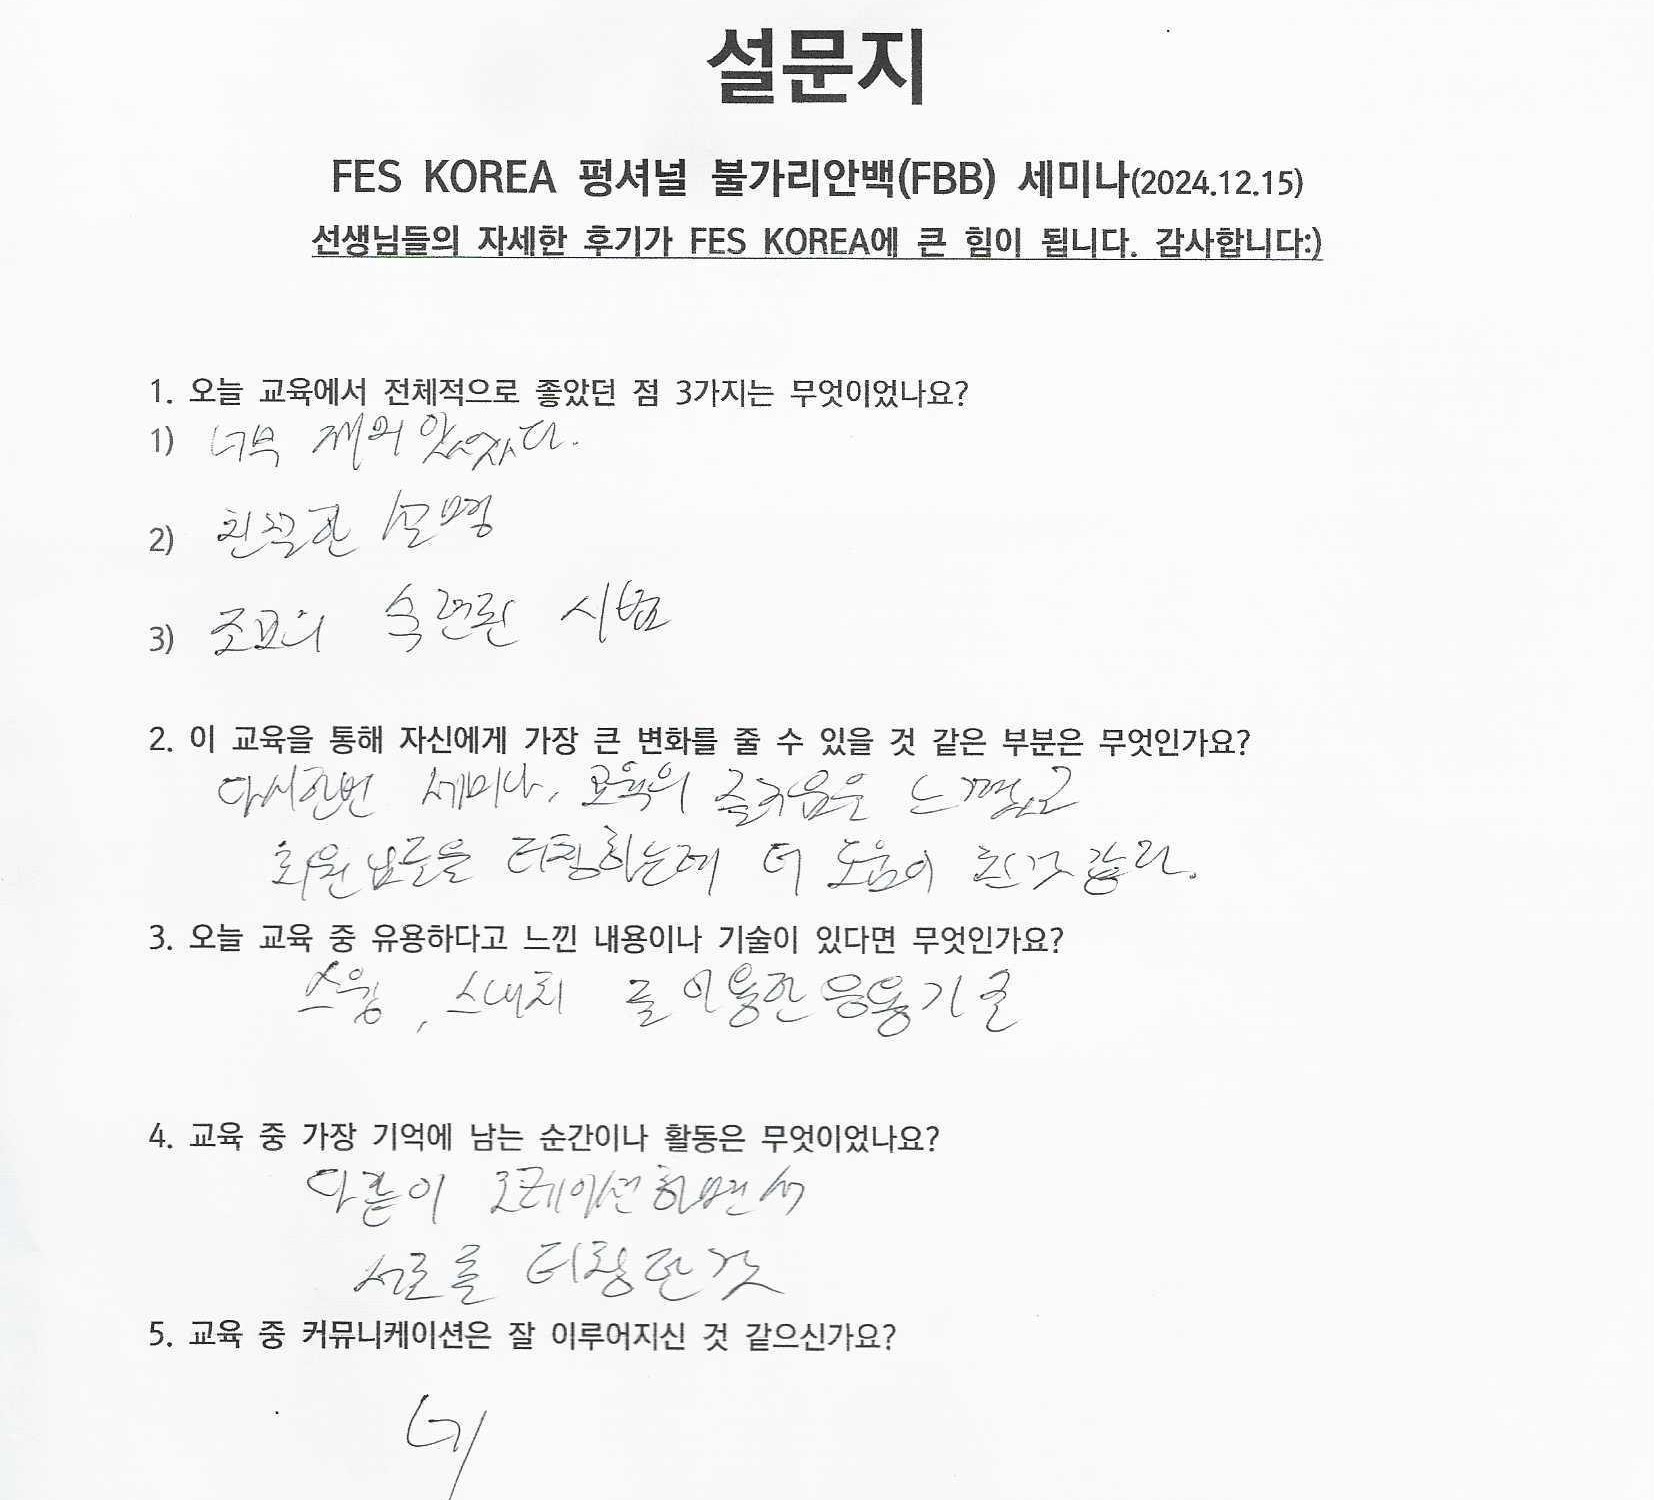 설문지
FES KOREA 펑셔널 불가리안백(FBB) 세미나(2024.12.15)
선생님들의 자세한 후기가 FES KOREA에 큰 힘이 됩니다. 감사합니다:)
1. 오늘 교육에서 전체적으로 좋았던 점 3가지는 무엇이었나요?
1) 너무 재미 있었다.
2) 친절한 설명
3) 조교의 숙련된 시범
2. 이 교육을 통해 자신에게 가장 큰 변화를 줄 수 있을 것 같은 부분은 무엇인가요?
다시한번 세미나, 교육의 즐거움을 느꼈고
회원님들을 티칭하는데 더 도움이 될것 같다.
3. 오늘 교육 중 유용하다고 느낀 내용이나 기술이 있다면 무엇인가요?
스윙, 스내치 를 이용한 응용기술
4. 교육 중 가장 기억에 남는 순간이나 활동은 무엇이었나요?
다같이 로테이션하면서
서로를 티칭한것
5. 교육 중 커뮤니케이션은 잘 이루어지신 것 같으신가요?
네